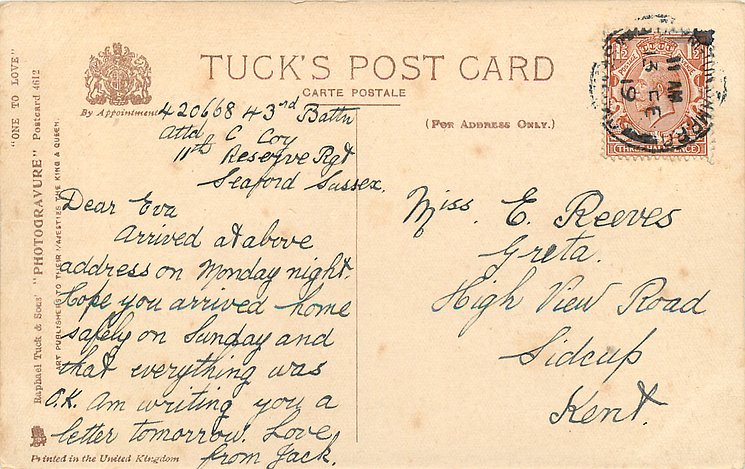 "ONE TO LOVE"
Raphael Tuck & Sons' "PHOTOGRAVURE" Postcard 4612
ART PUBLISHERS TO THEIR MAJESTIES THE KING & QUEEN.
By Appointment
TUCK'S POST CARD
CARTE POSTALE
(FOR ADDRESS ONLY.)
420668 43rd Battn
Attd C Coy
11th Reserve Rgt
Seaford Sussex.
Dear Eva
Arrived at above
address on Monday night.
Hope you arrived home
safely on Sunday and
that everything was
O.K. Am writing you a
letter tomorrow. Love
from Jack.
Printed in the United Kingdom
Miss. E. Reeves
Greta.
High View Road
Sidcup
Kent.
1½ 1½
POSTAGE
THREE HALF PENCE
11 AM
13 FE
19